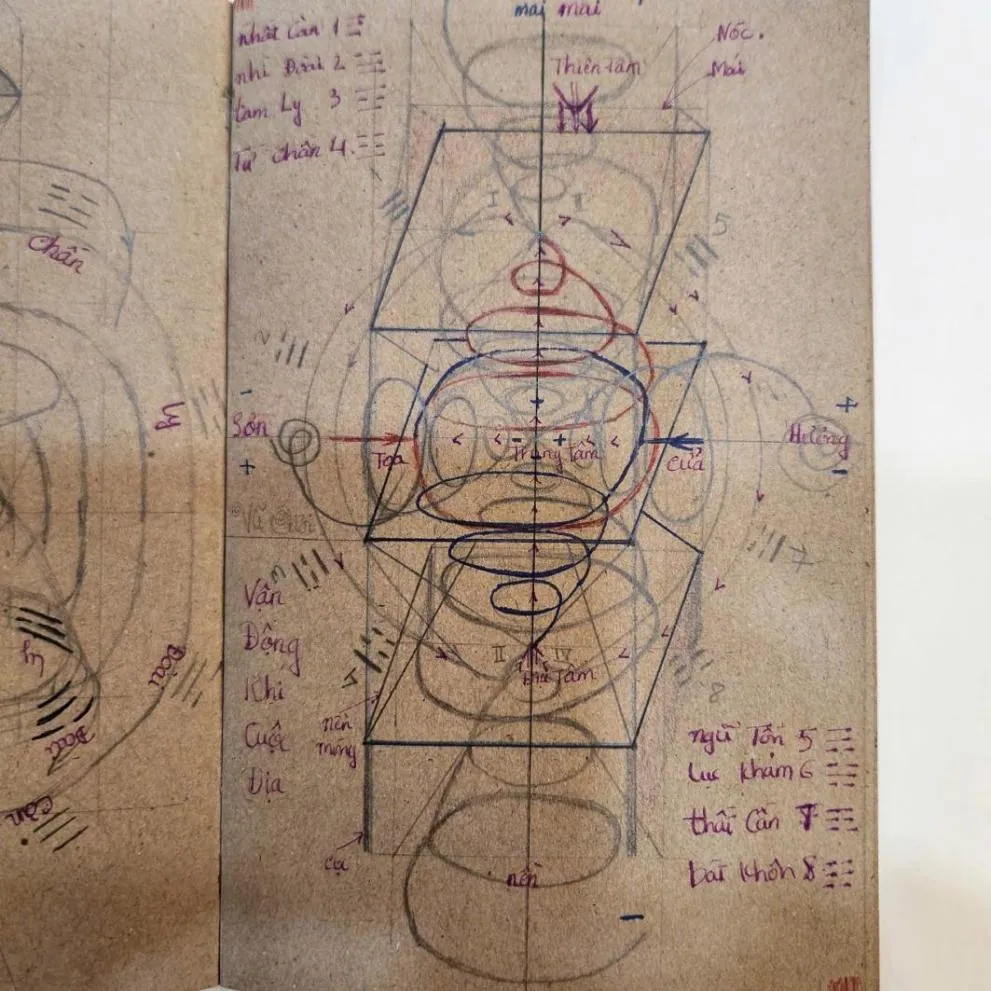 Chấn
Ly
Đoài
Ly
Đoài
Cấn
mái mái
nhất Càn 1
nhì Đoài 2
tam Ly 3
Tứ chấn 4
Nóc.
Mái
Thiên tâm
I
5
Sơn
Tọa
Trung tâm
Cửa
Hướng
-
+
+
-
Vũ trụ
Vận
Động
Khi
Cuộc
Địa
II
IV
Địa Tâm
8
nền
móng
cọc
nền
ngũ Tốn 5
Lục Khảm 6
thất Cấn 7
bát Khôn 8